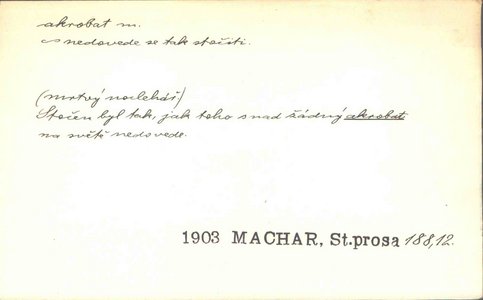 akrobat m.
∾ nedovede se tak stočiti.
(mrtvý noclehář)
Stočen byl tak, jak toho snad žádný akrobat
na světě nedovede.
1903 MACHAR, St.prosa 188,12.